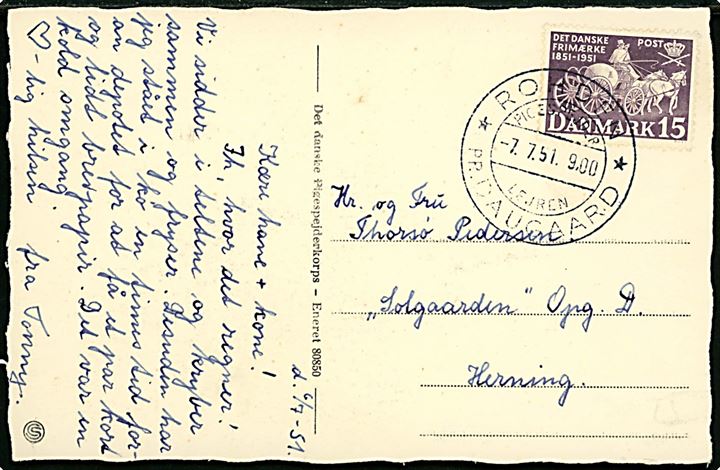 d. 6/7-51.
Kære hane + kone!
Ih, hvor det regner!
Vi sidder i teltene og kryber
sammen og fryser. Desuden har
jeg stået i kø en times tid for-
an depotet for at få et par kort
og lidt brevpapir. Det var en
kold omgang.
♡-lig hilsen fra Tonny.
Det danske Pigespejderkorps - Eneret 80850
DET DANSKE
FRIMÆRKE
1851-1951
POST
DANMARK 15
PIGESPEJDER
-7.7.51. 9.00
LEJREN
PR. DAUGAARD
Hr. og Fru
Thorsø Pedersen
"Solgaarden" Opg. D.
Herning.